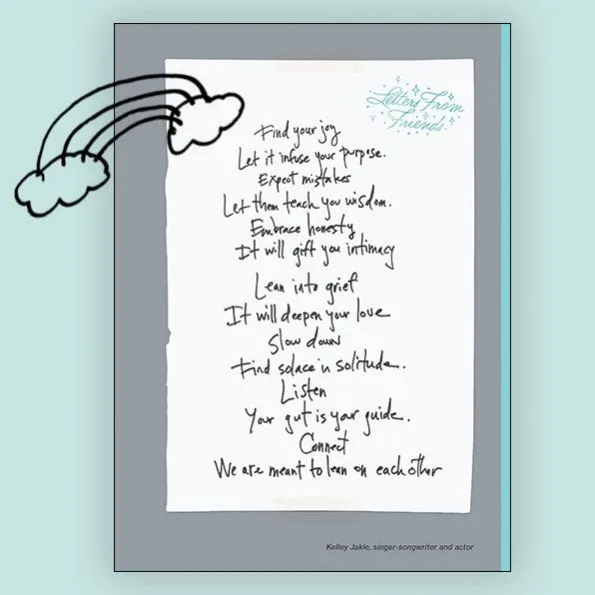 Letters From
Friends
Find your joy
Let it infuse your purpose.
Expect mistakes
Let them teach you wisdom.
Embrace honesty
It will gift you intimacy
Lean into grief
It will deepen your love
Slow down
Find solace in solitude.
Listen
Your gut is your guide.
Connect
We are meant to lean on each other
Kelley Jakle, singer-songwriter and actor